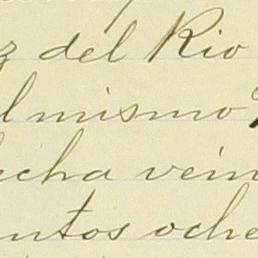 z del Rio
l mismo
echa vein
entos oche